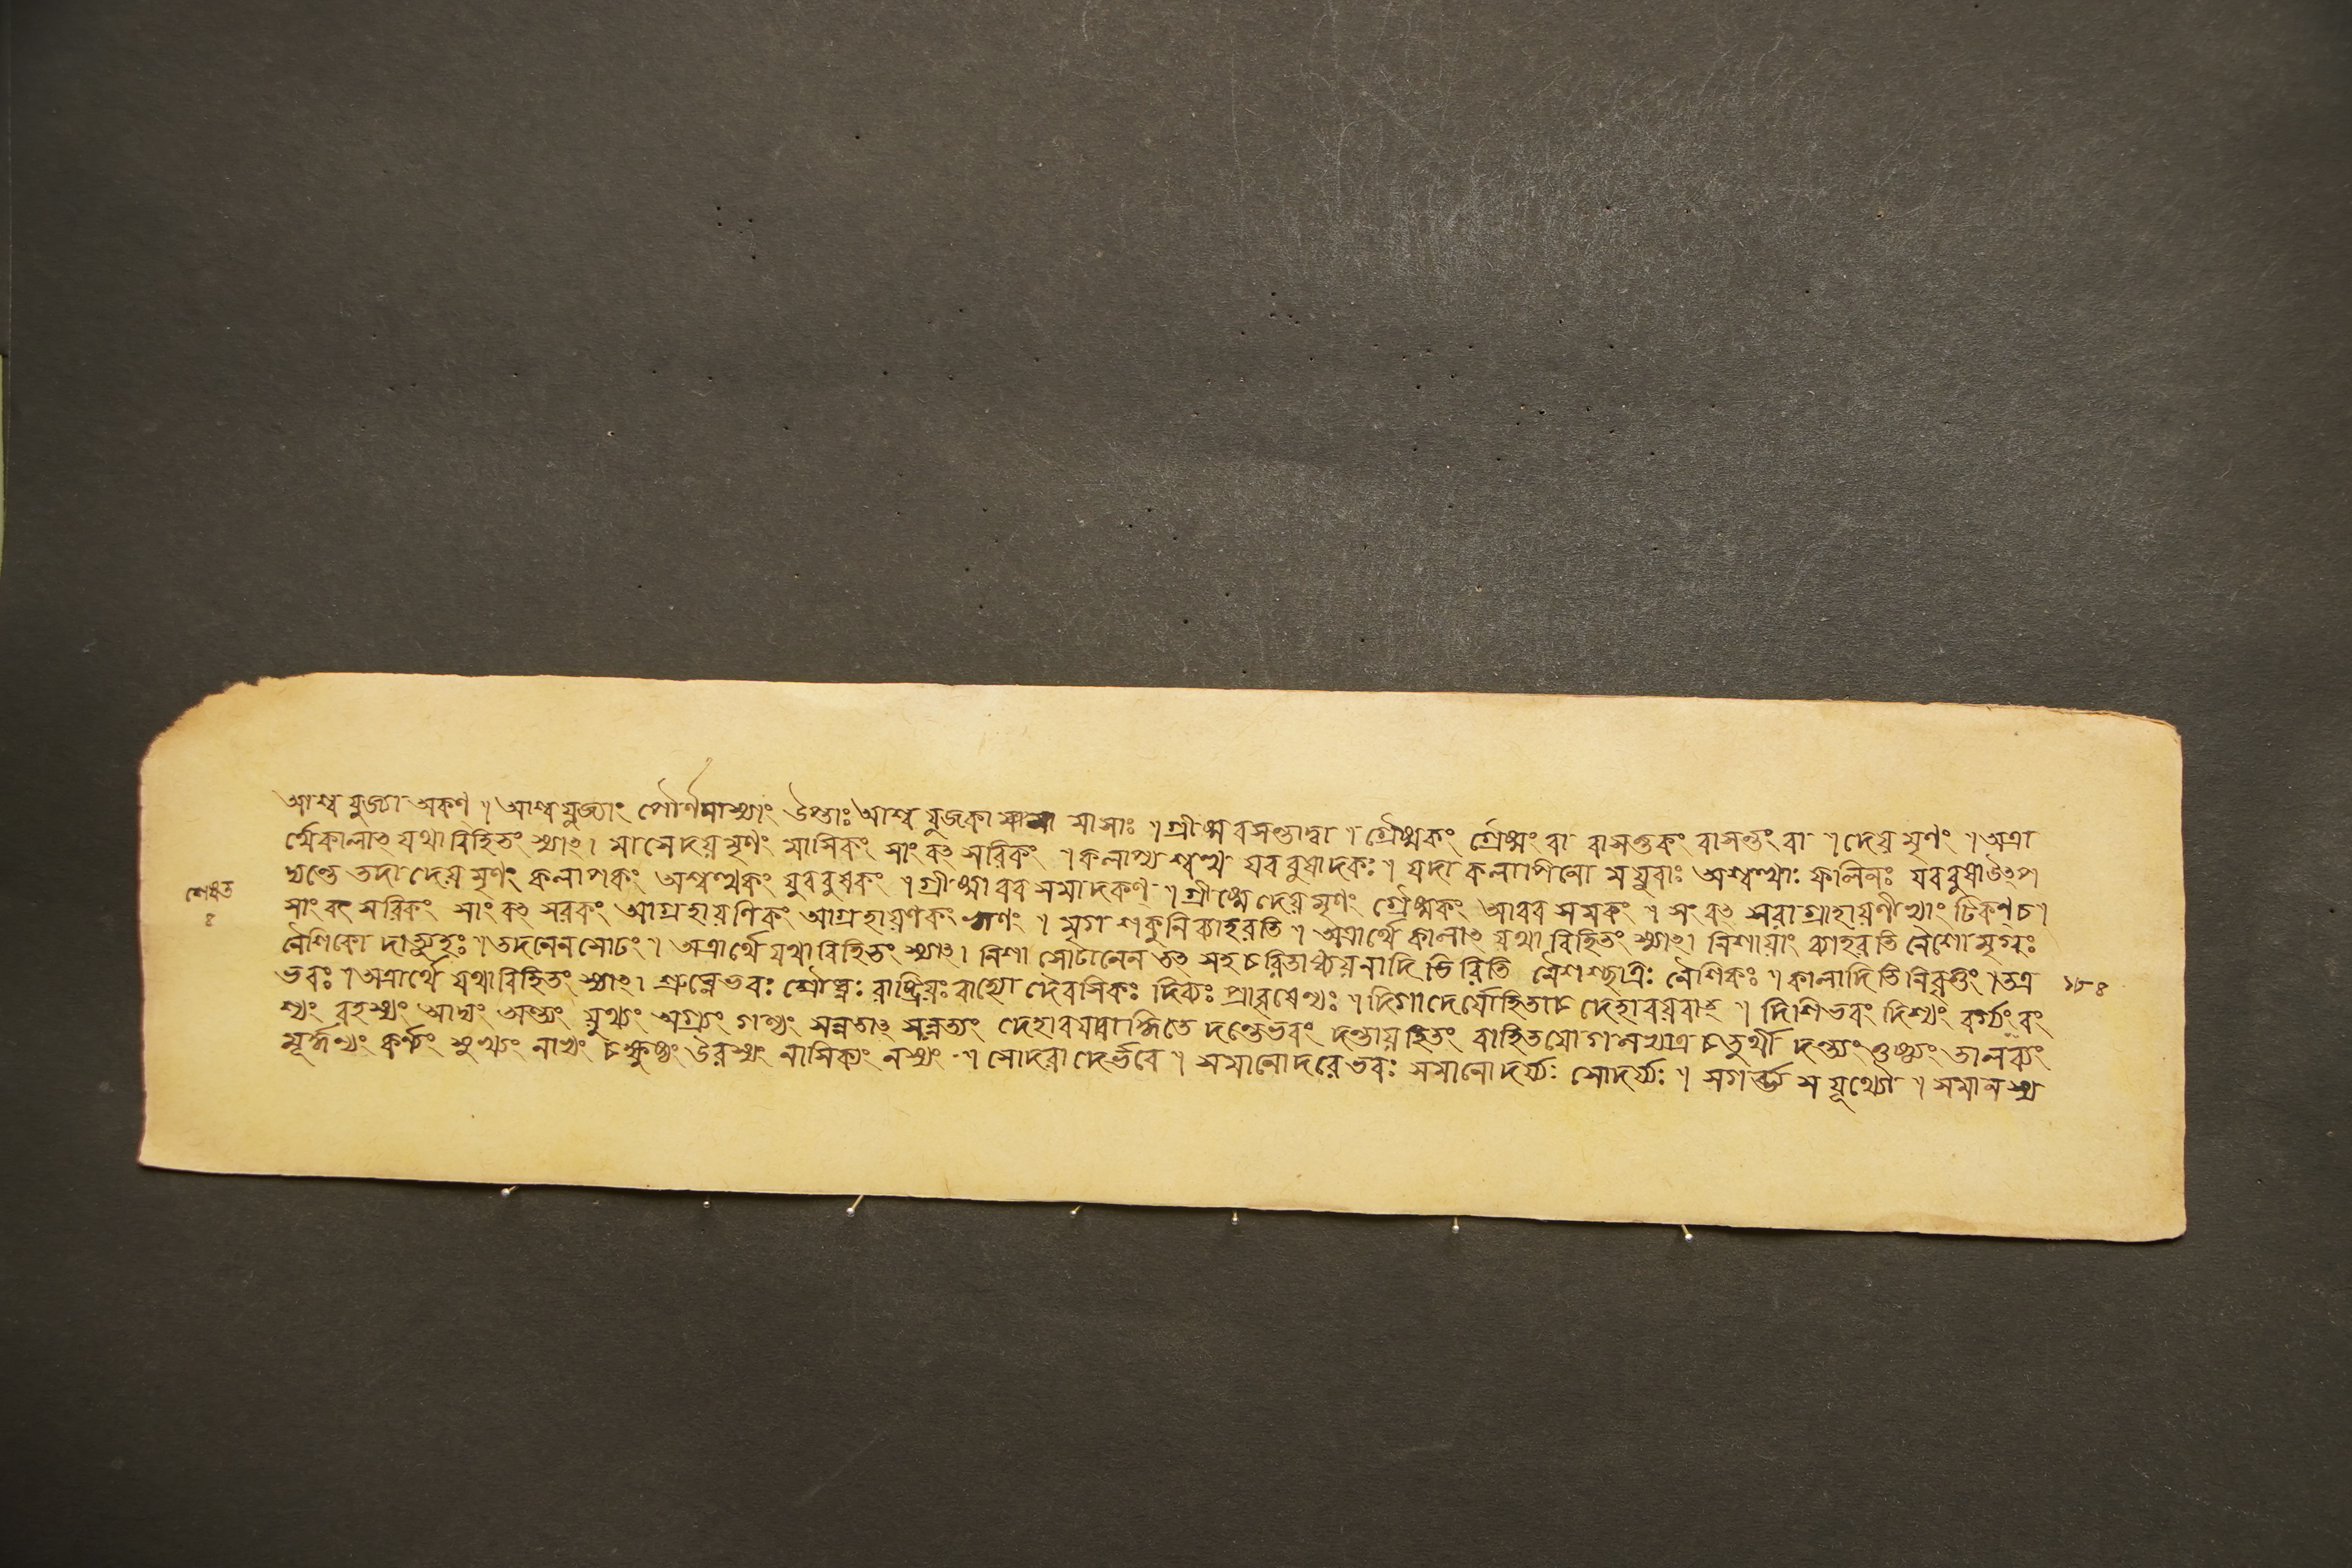 আশ্বযুজ্যা অকণ্ । আশ্বযুজ্যাং পৌর্ণমাস্যাং উপ্তাঃ আশ্বযুজকা মাষাঃ । গ্রীষ্মবসন্তাদ্বা । গ্রৈষ্মকং গ্রৈষ্মং বা বাসন্তকং বাসন্তং বা । দেয়মৃণং । অত্রা
র্থে কালাৎ যথাবিহিতং স্যাৎ । মাসে দেয়মৃণং মাসিকং সাংবৎসরিকং । কলাপ্যশ্বত্থ যববুষাদকঃ । যদা কলাপিনো ময়ুরাঃ অশ্বত্থাঃ ফলিনঃ যববুষা উৎপ
দ্যন্তে তদা দেয়মৃণং কলাপকং অশ্বত্থকং যববুষকং । গ্রীষ্মাবরসমাদকণ্ । গ্রীষ্মে দেয়মৃণং গ্রৈষ্মকং আবরসমকং । সংবৎসরাগ্রাহায়ণীভ্যাং টিকণ্ চ ।
সাংবৎসরিকং সাংবৎসরকং আগ্রহায়ণিকং আগ্রহায়ণকং ঋণং । মৃগশকুনি ব্যাহরতি । অত্রার্থে কালাৎ যথাবিহিতং স্যাৎ । নিশায়াং ব্যাহরতি নৈশো মৃগঃ
নৈশিকো দাত্যুহঃ । তদনেন সোঢং । অত্রার্থে যথাবিহিতং স্যাৎ । নিশা সোঢানেন তৎ সহচরিতাধ্যয়নাদিভিরিতি নৈশশ্ছাত্রঃ নৈশিকঃ । কালাদিতি নিবৃত্তং । তত্র
ভবঃ । অত্রার্থে যথাবিহিতং স্যাৎ । শ্রুঘ্নে ভবঃ শ্রৌঘ্নঃ রাষ্ট্রিয়ঃ বাহ্যো দৈবসিকঃ দিব্যঃ প্রাবৃষেণ্যঃ । দিগাদের্যো হিতাচ্চ দেহাবয়বাৎ । দিশি ভবং দিশ্যং বর্গ্যং বং
শ্যং রহস্যং আদ্যং অন্ত্যং যুথ্যং অগ্র্যং গণ্যং দেহাবয়বাদ্ধিতে দন্তে ভবং দন্তায় হিতং বা হিতযোগ চতুর্থী দন্ত্যং ওষ্ঠ্যং তালব্যং
মূর্দ্ধন্যং কণ্ঠ্যং মুখ্যং চক্ষুষ্যং উরস্যং নাসিক্যং নস্যং । সোদরাদের্ভবে । সমানোদরে ভবঃ সমানোদর্য্যঃ সোদর্য্যঃ । সগর্ভ্য সযূথ্যৌ । সমানস্য
৪
১৮৪